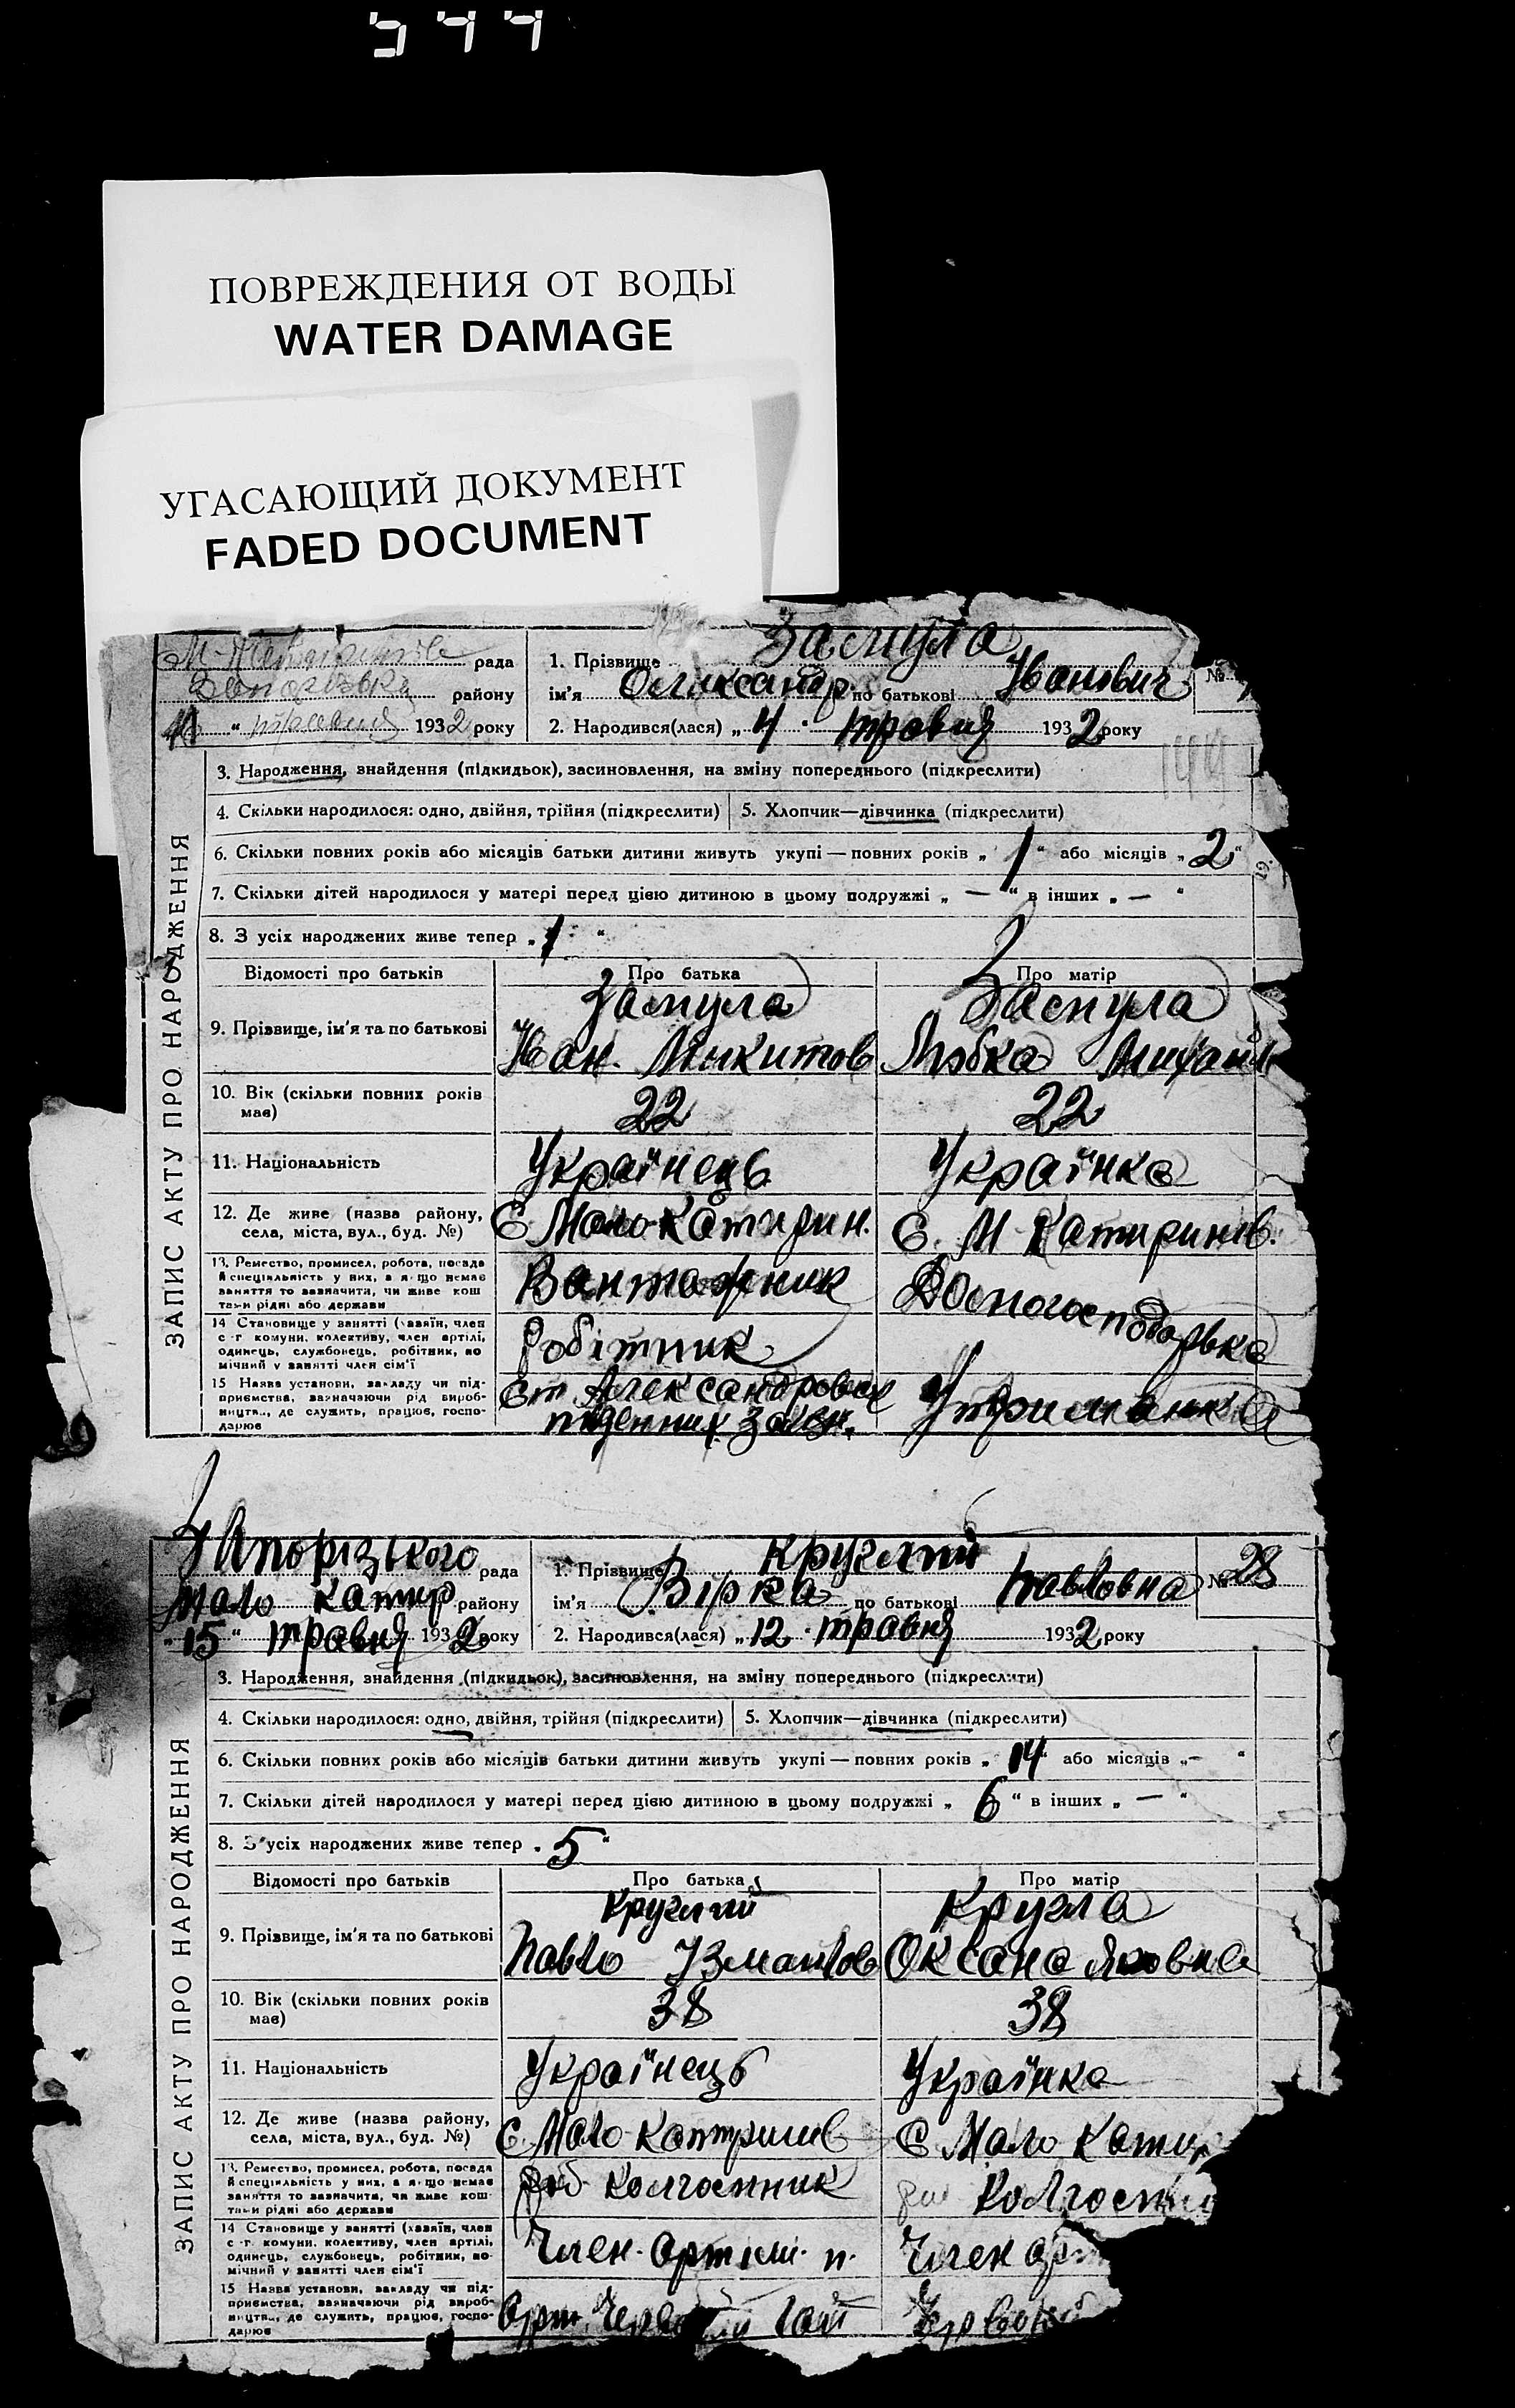 ПОВРЕЖДЕНИЯ ОТ ВОДЫ
WATER DAMAGE
УГАСАЮЩИЙ ДОКУМЕНТ
FADED DOCUMENT
ЗАПИС АКТУ ПРО НАРОДЖЕННЯ
рада
району
11 " травня 1932 року
1. Прізвище Заспула
ім'я Олександр по батькові Іванович
№
2. Народився(лася) „ 4 " травня 1932 року
3. Народження, знайдення (підкидьок), засиновлення, на зміну попереднього (підкреслити)
4. Скільки народилося: одно, двійня, трійня (підкреслити)
5. Хлопчик—дівчинка (підкреслити)
6. Скільки повних років або місяців батьки дитини живуть укупі — повних років „ 1 " або місяців „ 2 "
7. Скільки дітей народилося у матері перед цією дитиною в цьому подружжі „ — " в інших „ — "
8. З усіх народжених живе тепер „ 1 "
Відомості про батьків
Про батька
Про матір
9. Прізвище, ім'я та по батькові
Заспула
Іван. Микитов
Заспула
Любка Михайл
10. Вік (скільки повних років має)
22
22
11. Національність
Українець
Українка
12. Де живе (назва району, села, міста, вул., буд. №)
С. Мало-Катирин.
С. М Катиринів.
13. Ремество, промисел, робота, посада й спеціяльність у них, а якщо немає заняття то зазначити, чи живе коштами рідні або держави
Вантажник
Домогосподарька
14 Становище у занятті (хазяїн, член с-г комуни, колективу, член артілі, одинець, службовець, робітник, помічний у занятті член сім'ї
Робітник
15 Назва установи, закладу чи підприємства, зазначаючи рід виробництва, де служить, працює, господарює
Ст Александровск
південних залізн.
Утриманка
ЗАПИС АКТУ ПРО НАРОДЖЕННЯ
Запорізького рада
Мало Катир району
„ 15 " травня 1932 року
1. Прізвище Круглий
ім'я Вірка по батькові Павловна
№ 28
2. Народився(лася) „ 12 " травня 1932 року
3. Народження, знайдення (підкидьок), засиновлення, на зміну попереднього (підкреслити)
4. Скільки народилося: одно, двійня, трійня (підкреслити)
5. Хлопчик—дівчинка (підкреслити)
6. Скільки повних років або місяців батьки дитини живуть укупі — повних років „ 14 " або місяців „ — "
7. Скільки дітей народилося у матері перед цією дитиною в цьому подружжі „ 6 " в інших „ — "
8. З усіх народжених живе тепер „ 5 "
Відомості про батьків
Про батька
Про матір
9. Прізвище, ім'я та по батькові
Круглий
Павло Ізмаилов
Кругла
Оксана Яковна
10. Вік (скільки повних років має)
38
38
11. Національність
Українець
Українка
12. Де живе (назва району, села, міста, вул., буд. №)
С. Мало Катиринів
С Мало Катир
13. Ремество, промисел, робота, посада й спеціяльність у них, а якщо немає заняття то зазначити, чи живе коштами рідні або держави
роб колгоспник
колгоспни
14 Становище у занятті (хазяїн, член с-г комуни, колективу, член артілі, одинець, службовець, робітник, помічний у занятті член сім'ї
Член артіли
Член арт
15 Назва установи, закладу чи підприємства, зазначаючи рід виробництва, де служить, працює, господарює
Арт. Червоний Гай
Червоний